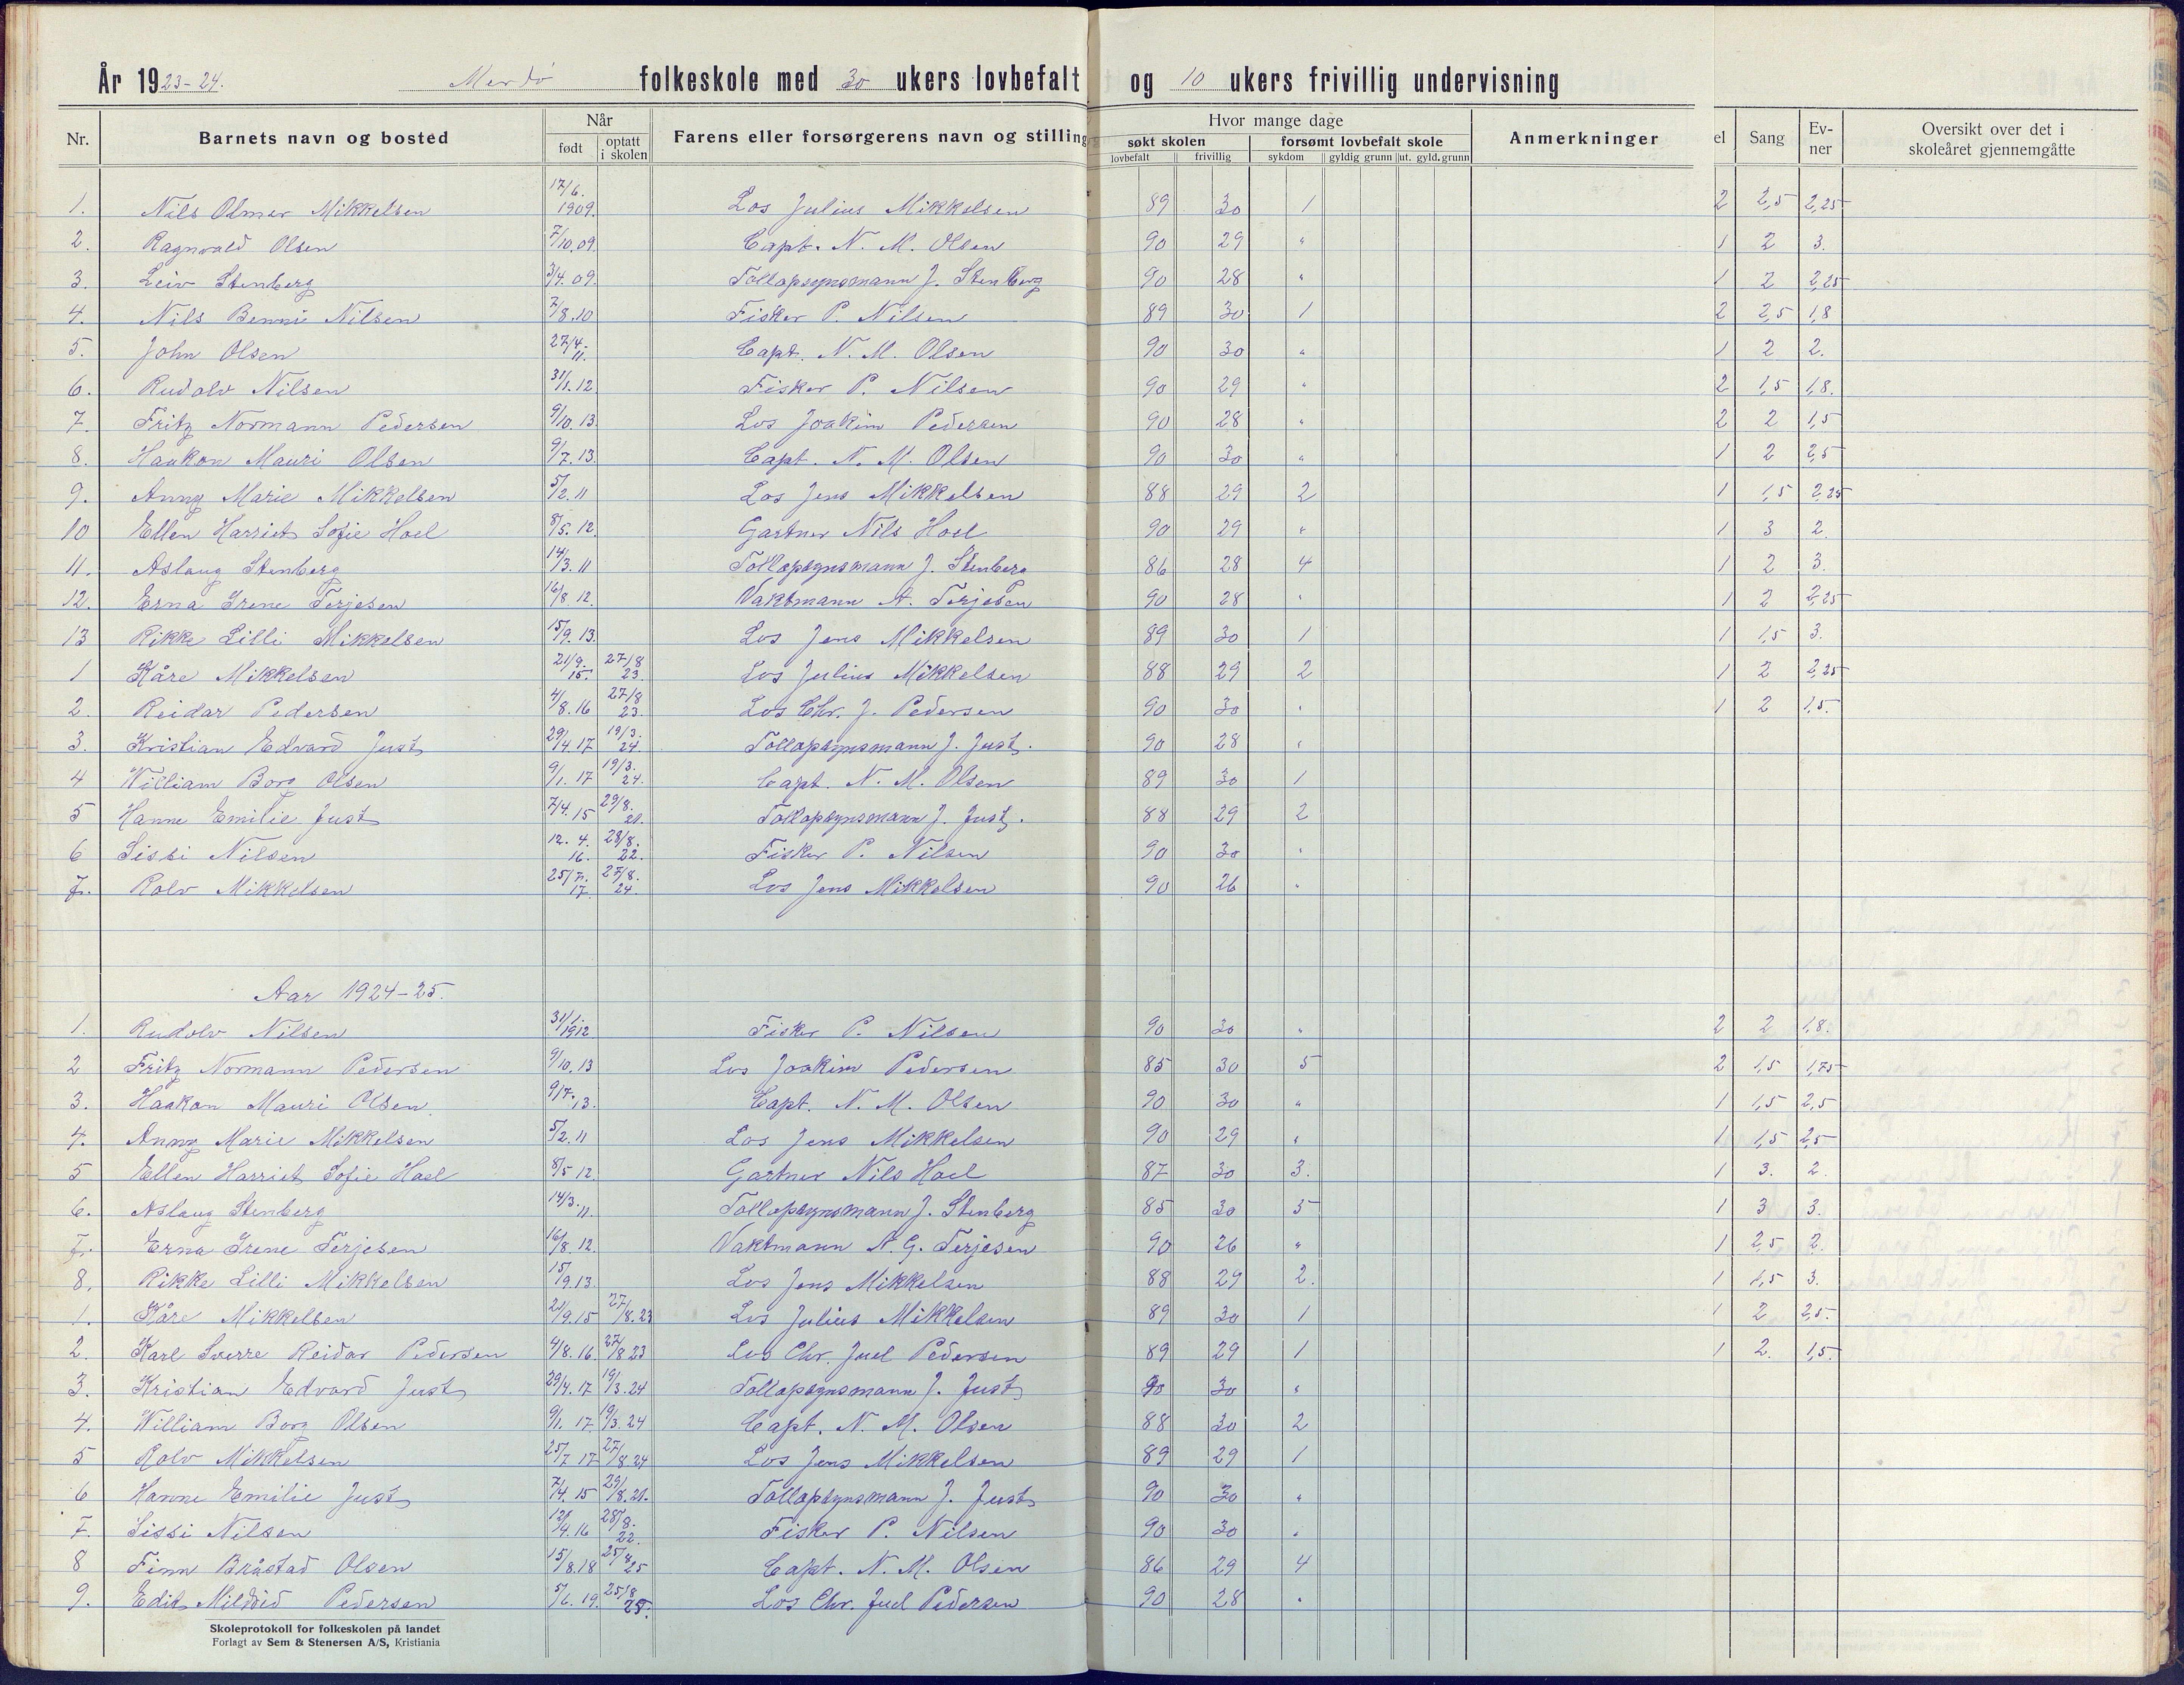 År 1923-24. Merdö folkeskole med 30 ukers lovbefalt og 10 ukers frivillig undervisning
Nr. Barnets navn og bosted Når født optatt i skolen Farens eller forsørgerens navn og stilling Hvor mange dage søkt skolen lovbefalt frivillig forsømt lovbefalt skole sykdom gyldig grunn ut. gyld. grunn Anmerkninger el Sang Evner Oversikt over det i skoleåret gjennemgåtte
1. Nils Olmer Mikkelsen 17/6. 1909. Los Julius Mikkelsen 89 30 1 2 2,5 2,25
2. Ragnvald Olsen 7/10.09. Capt. N. M. Olsen 90 29 " 1 2 3.
3. Leiv Stenberg 3/4.09. Tollopsynsmann J. Stenberg 90 28 " 1 2 2,25
4. Nils Bennie Nilsen 7/8.10 Fisker P. Nilsen 89 30 1 2 2,5 1,8
5. John Olsen 27/4. 11. Capt. N. M. Olsen 90 30 " 1 2 2.
6. Rudolv Nilsen 31/1.12. Fisker P. Nilsen 90 29 " 2 1,5 1,8.
7. Fritz Normann Pedersen 9/10.13. Los Joakim Pedersen 90 28 " 2 2 1,5
8. Haakon Mauri Olsen 9/7.13. Capt. N. M. Olsen 90 30 " 1 2 2,5
9. Anny Marie Mikkelsen 5/2.11 Los Jens Mikkelsen 88 29 2 1 1,5 2,25
10 Ellen Harriet Sofie Hoel 8/5.12. Gartner Nils Hoel 90 29 " 1 3 2.
11. Aslaug Stenberg 14/3.11 Tollopsynsmann J. Stenberg 86 28 4 1 2 3.
12. Erna Irene Terjesen 16/8.12. Vaktmann A. Terjesen 90 28 " 1 2 2,25
13 Rikke Lilli Mikkelsen 15/9.13. Los Jens Mikkelsen 89 30 1 1 1,5 3.
1 Kåre Mikkelsen 21/9. 15. 27/8 23. Los Julius Mikkelsen 88 29 2 1 2 2,25
2. Reidar Pedersen 4/8.16 27/8 23. Los Chr. J. Pedersen 90 30 " 1 2 1,5.
3. Kristian Edvard Just 29/4.17 19/3. 24. Tollopsynsmann J. Just. 90 28 "
4 William Borg Olsen 9/1.17 19/3. 24. Capt. N. M. Olsen 89 30 1
5 Hanne Emilie Just 7/4.15 29/8. 21. Tollopsynsmann J. Just. 88 29 2
6 Sissi Nilsen 12. 4. 16. 28/8. 22. Fisker P. Nilsen 90 30 "
7. Rolv Mikkelsen 25/7. 17. 27/8. 24. Los Jens Mikkelsen 90 26 "
Aar 1924-25.
1. Rudolv Nilsen 31/1. 1912 Fisker P. Nilsen 90 30 " 2 2 1,8.
2 Fritz Normann Pedersen 9/10.13 Los Joakim Pedersen 85 30 5 2 1,5 1,75
3. Haakon Mauri Olsen 9/7.13. Capt. N. M. Olsen 90 30 " 1 1,5 2,5
4. Anny Marie Mikkelsen 5/2.11 Los Jens Mikkelsen 90 29 " 1 1,5 2,5
5 Ellen Harriet Sofie Hoel 8/5 12. Gartner Nils Hoel 87 30 3. 1 3. 2.
6. Aslaug Stenberg 14/3. 11. Tollopsynsmann J. Stenberg 85 30 5 1 3 3.
7. Erna Irene Terjesen 16/8.12. Vaktmann A. G. Terjesen 90 26 " 1 2,5 2.
8. Rikke Lilli Mikkelsen 15/9.13. Los Jens Mikkelsen 88 29 2. 1 1,5 3.
1. Kåre Mikkelsen 21/9.15 27/8.23 Los Julius Mikkelsen 89 30 1 1 2 2,5.
2. Karl Sverre Reidar Pedersen 4/8.16. 27/8 23 Los Chr. Juel Pedersen 89 29 1 1 2. 1,5.
3. Kristian Edvard Just 29/4.17 19/3.24 Tollopsynsmann J. Just 90 30 "
4. William Borg Olsen 9/1.17 19/3.24 Capt. N. M. Olsen 88 30 2
5 Rolv Mikkelsen 25/7 17 27/8 24 Los Jens Mikkelsen 89 29 1
6 Hanne Emilie Just 7/4.15 29/8.21. Tollopsynsmann J. Just 90 30 "
7. Sissi Nilsen 12/4.16 28/8. 22. Fisker P. Nilsen 90 30 "
8 Finn Bråstad Olsen 15/8.18 25/8 25 Capt. N. M. Olsen 86 29 4
9. Edit Mildrid Pedersen 5/6.19. 25/8 25. Los Chr. Juel Pedersen 90 28 "
Skoleprotokoll for folkeskolen på landet
Forlagt av Sem & Stenersen A/S, Kristiania